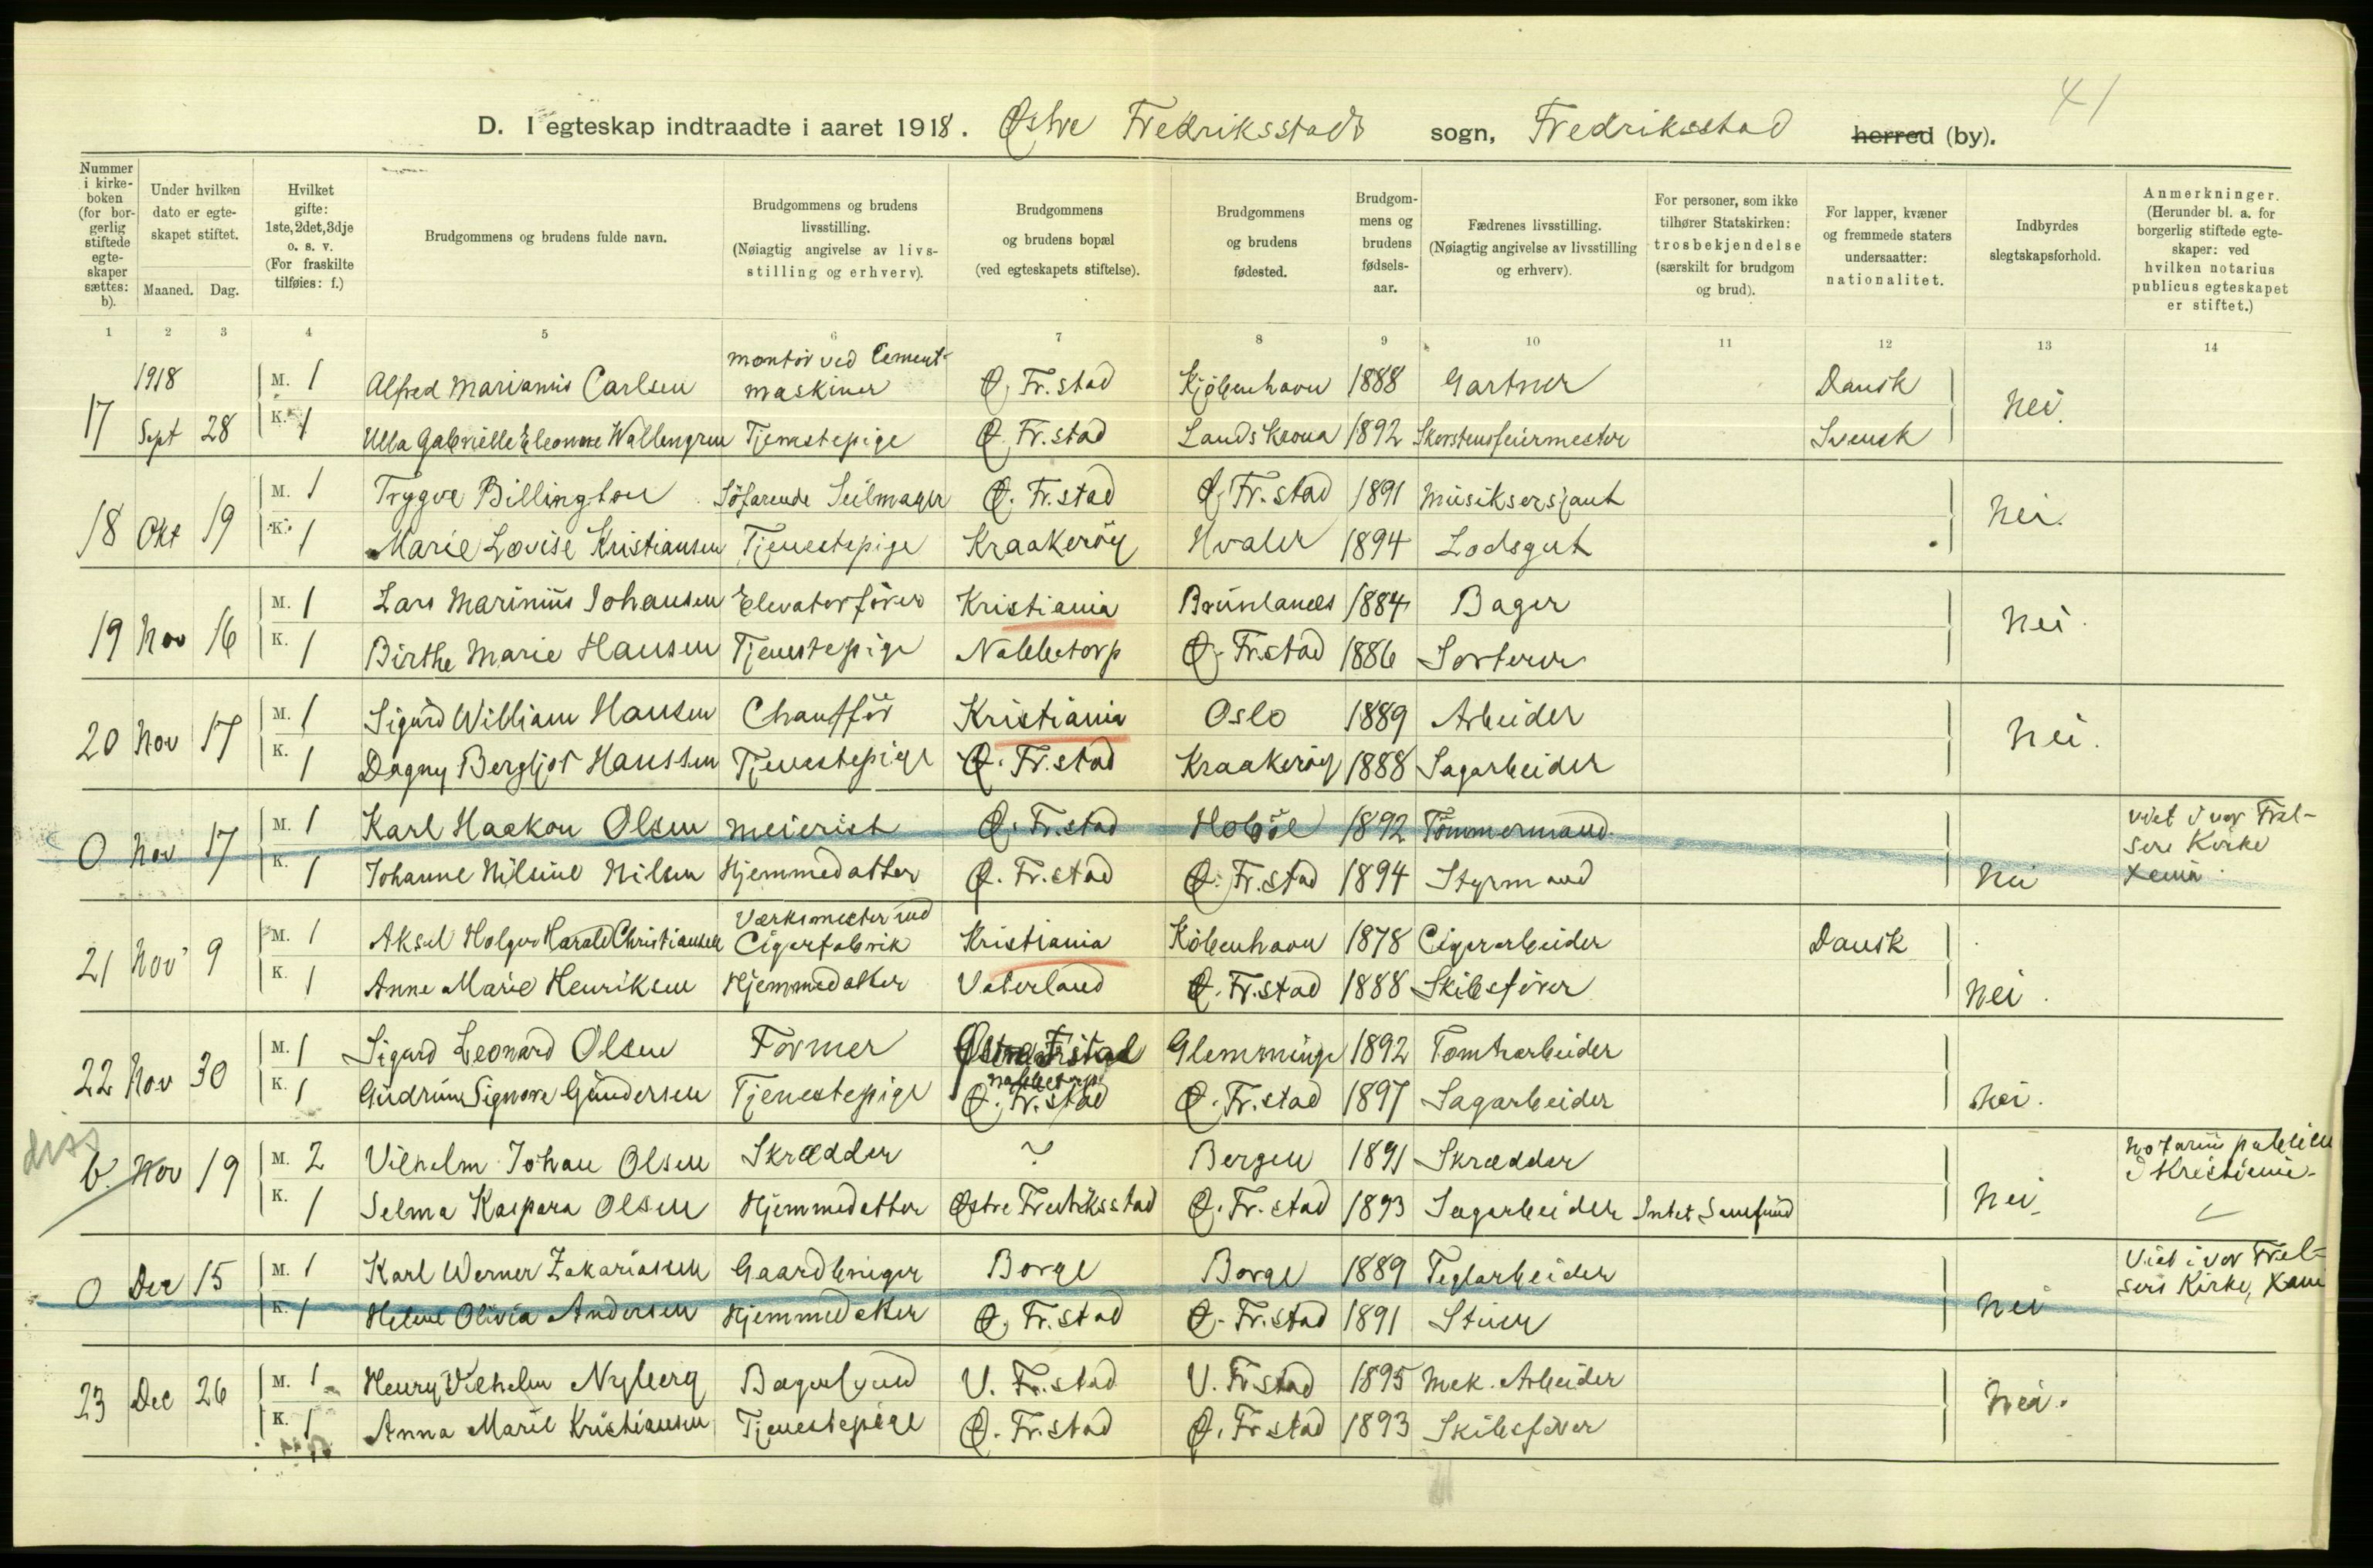 41
D. I egteskap indtraadte i aaret 1918. Østre Fredriksstads sogn, Fredriksstad herred (by).
Nummer i kirke-boken (for bor-gerlig stiftede egte-skaper sættes: b).
Under hvilken dato er egte-skapet stiftet.
Maaned. Dag.
Hvilket gifte: 1ste, 2det, 3dje o. s. v. (For fraskilte tilføies: f.)
Brudgommens og brudens fulde navn.
Brudgommens og brudens livsstilling. (Nøiagtig angivelse av livs-stilling og erhverv).
Brudgommens og brudens bopæl (ved egteskapets stiftelse).
Brudgommens og brudens fødested.
Brudgom-mens og brudens fødsels-aar.
Fædrenes livsstilling. (Nøiagtig angivelse av livsstilling og erhverv).
For personer, som ikke tilhører Statskirken: trosbekjendelse (særskilt for brudgom og brud).
For lapper, kvæner og fremmede staters undersaatter: nationalitet.
Indbyrdes slegtskapsforhold.
Anmerkninger. (Herunder bl. a. for borgerlig stiftede egte-skaper: ved hvilken notarius publicus egteskapet er stiftet.)
1 2 3 4 5 6 7 8 9 10 11 12 13 14
1918 M. 1 Alfred Marianus Carlsen montör ved Cement-maskiner Ø. Fr.stad Kjöbenhavn 1888 Gartner Dansk
17 Sept 28 K. 1 Ulla Gabrielle Eleonore Wallengren Tjenestepige Ø. Fr.stad Landskrona 1892 Skorstensfeiermester Svensk Nei.
M. 1 Trygve Billington Söfarende Seilmager Ø. Fr.stad Ø. Fr.stad 1891 Musiksersjant
18 Okt 19 K. 1 Marie Lovise Kristiansen Tjenestepige Kraakeröy Hvaler 1894 Lodsgut Nei.
M. 1 Lars Marinius Johansen Elevatorförer Kristiania Brunlanes 1884 Bager
19 Nov 16 K. 1 Birthe Marie Hansen Tjenestepige Nabbetorp Ø. Fr.stad 1886 Sorterer Nei.
M. 1 Sigurd William Hansen Chaufför Kristiania Oslo 1889 Arbeider
20 Nov 17 K. 1 Dagny Bergljot Hanssen Tjenestepige Ø. Fr.stad Kraakeröy 1888 Sagarbeider Nei.
M. 1 Karl Haakon Olsen Meierist Ø. Fr.stad Haböl 1892 Tömmermand viet i vor Frel-sers Kirke
0 Nov 17 K. 1 Johanne Nilsine Nilsen Hjemmedatter Ø. Fr.stad Ø. Fr.stad 1894 Styrmand Nei
M. 1 Aksel Holger Harald Christiansen Værksmester ved Cigarfabrik Kristiania Köbenhavn 1878 Cigararbeider Dansk
21 Nov 9 K. 1 Anne Marie Henriksen Hjemmedatter Vaterland Ø. Fr.stad 1888 Skibsförer Nei.
M. 1 Sigurd Leonard Olsen Former Østre Frstad Glemminge 1892 Tomtarbeider
22 Nov 30 K. 1 Gudrun Signora Gundersen Tjenestepige Nabbetorp Ø. Fr.stad Ø. Fr.stad 1897 Sagarbeider Nei.
M. 2 Vilhelm Johan Olsen Skrædder ? Bergen 1891 Skrædder
b. Nov 19 K. 1 Selma Kaspara Olsen Hjemmedatter Østre Fredriksstad Ø. Fr.stad 1893 Sagarbeider Intet Samfund Nei. i Kristiania
M. 1 Karl Werner Zakariassen Gaardbruger Borge Borge 1889 Teglarbeider Viet i vor Frel-sers Kirke,
0 Dec 15 K. 1 Helene Olivia Andersen Hjemmedatter Ø. Fr.stad Ø. Fr.stad 1891 Stuer Nei
M. 1 Henry Vilhelm Nyberg Bagersvend V. Fr.stad V. Fr.stad 1895 Mek. Arbeider
23 Dec 26 K. 1 Anna Marie Kristiansen Tjenestepige Ø. Fr.stad Ø. Fr.stad 1893 Skibsförer Nei.